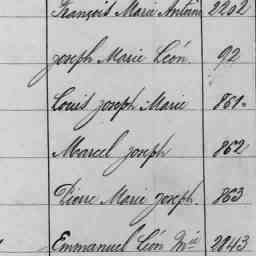 François Marie Antoine 2202
Joseph Marie Léon 92
Louis Joseph Marie 861
Marcel Joseph 862
Pierre Marie Joseph. 863
Emmanuel Léon Mie 2843